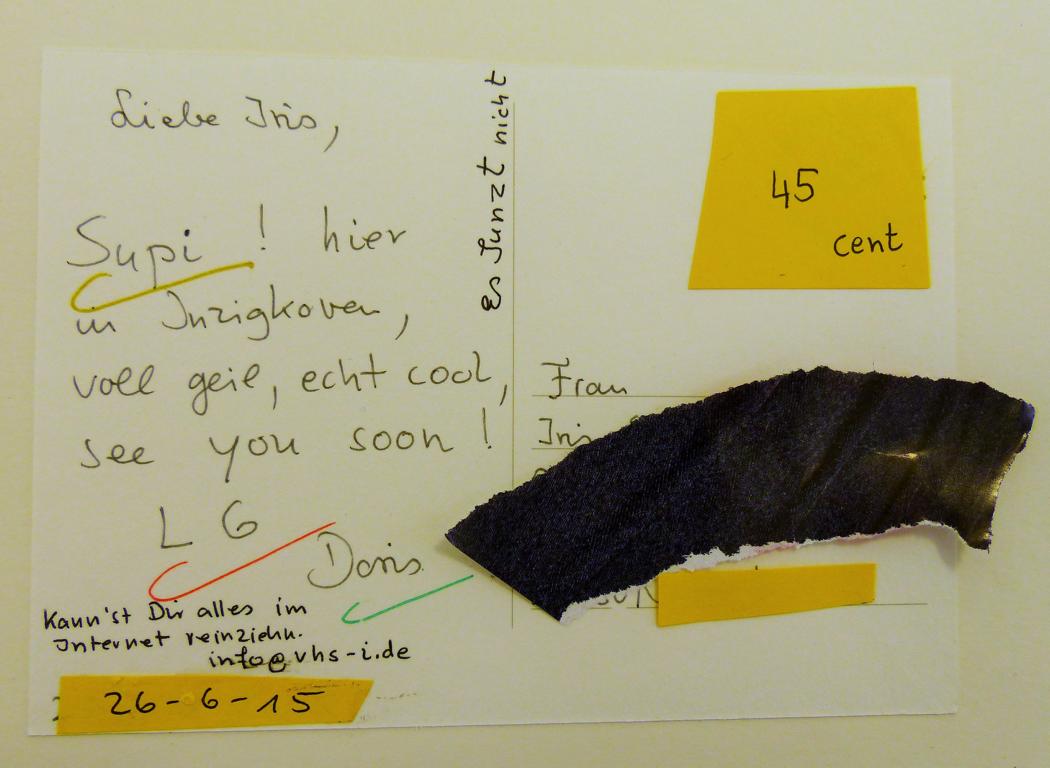 Liebe Iris,
Supi! hier
in Inzigkoven,
voll geil, echt cool,
see you soon!
L G
Doris
Kann'st Dir alles im
Internet reinziehn.
info@vhs-i.de
26-6-15
es funzt nicht
45
cent
Frau
Iris